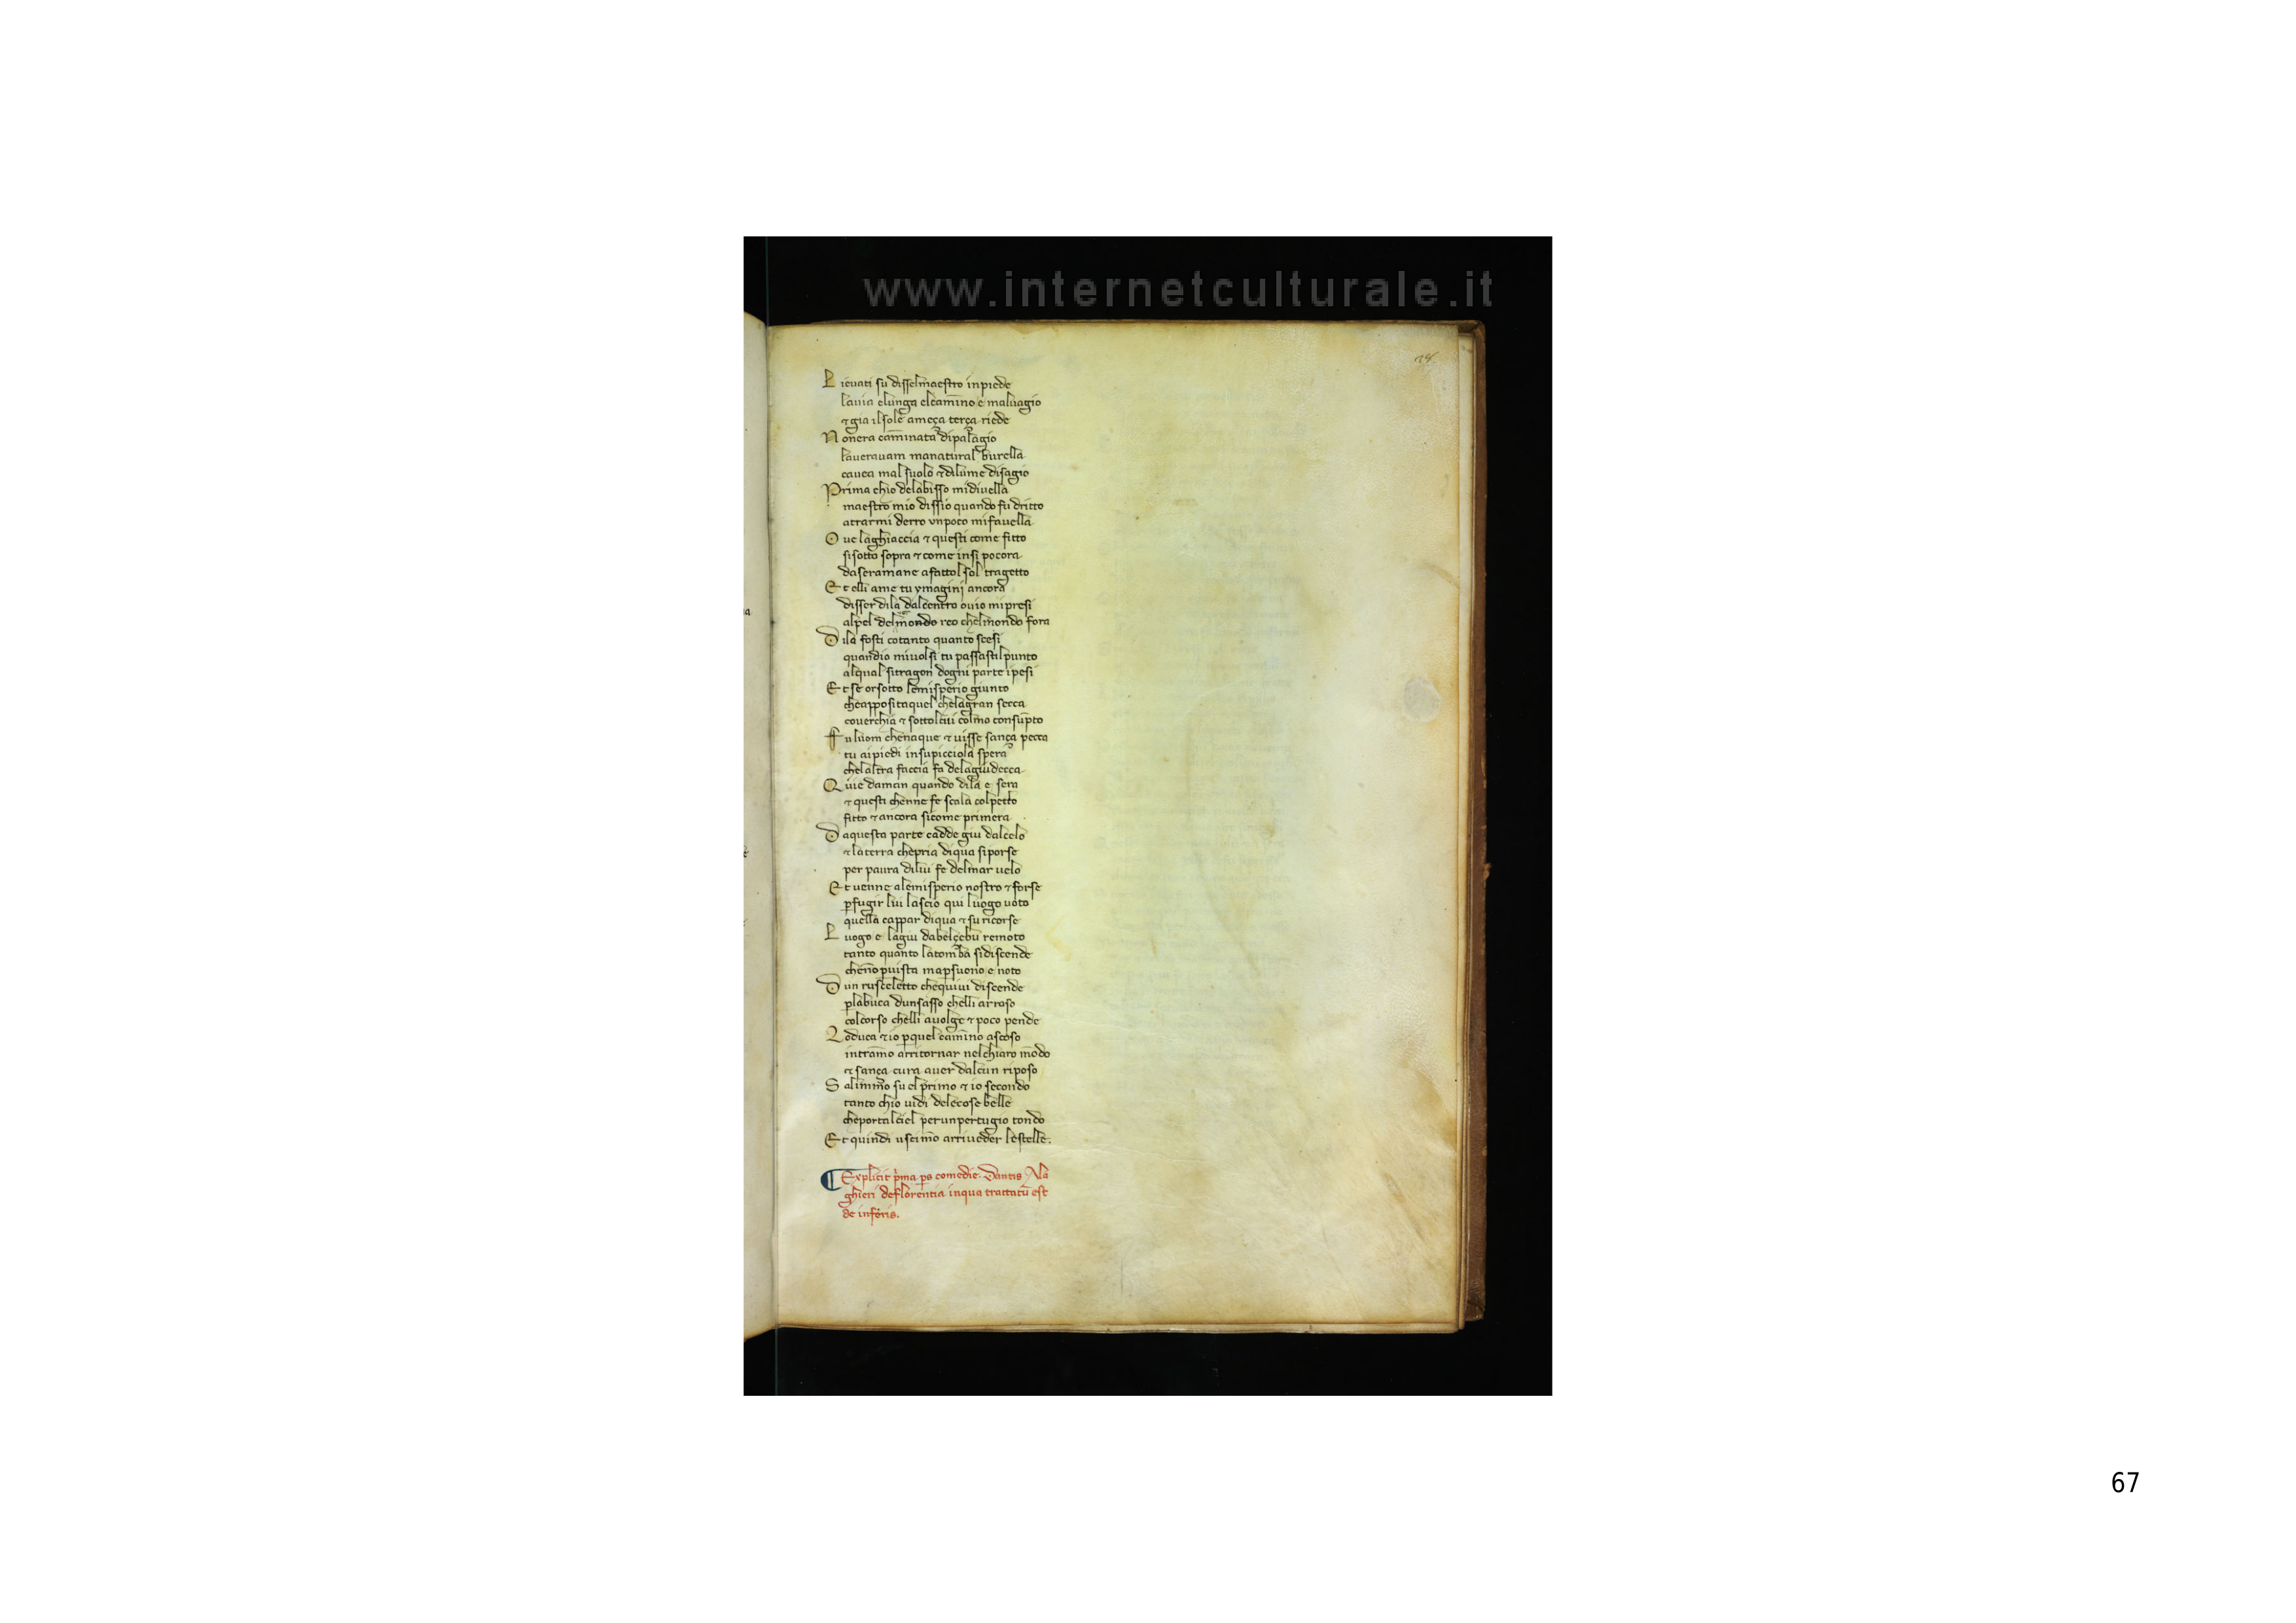 www.internetculturale.it
Lieuati su dissel maestro inpiede
lauia elunga elcam̅ino e maluagio
⁊ gia ilsole ameça terça riede
Nonera cam̅inata dipalagio
laueravam manatural burella
cauea mal suolo ⁊ dilume disagio
Prima chio delabisso midiuella
maestro mio dissio quando fu dritto
atrarmi derro vnpoco mi fauella
Oue laghiaccia ⁊ questi come fitto
si sotto sopra ⁊ come insi pocora
dasera mane a fattol sol tragetto
Et elli ame tu ymagini ancora
disser dila dalcentro ouio mi presi
alpel del mondo reo chel mondo fora
Dila fosti cotanto quanto scesi
quandio mi uolsi tu passastil punto
alqual si tragon dogni parte ipesi
Et se or sotto lemisperio giunto
che apposita quel chela gran secca
couerchia ⁊ sottol cui colmo consu̅pto
Fu luom che naque ⁊ uisse sança pecca
tu ai piedi insu picciola spera
che laltra faccia fa dela giudecca
Qui e da man quando dila e sera
⁊ questi chenne fe scala colpetto
fitto ⁊ ancora si come primera
Da questa parte cadde giu dalcelo
⁊ la terra che pria diqua si porse
per paura dilui fe delmar uelo
Et uenne alemisperio nostro ⁊ forse
p̲ fugir lui lascio qui luogo uoto
quella cappar diqua ⁊ su ricorse
Luogo e lagiu dabelçebu remoto
tanto quanto latomba si discende
che no̅ p̲ uista ma p̲ suono e noto
Dun rusceletto che quiui discende
p̲ la buca dun sasso chelli arroso
col corso chelli auolge ⁊ poco pende
Lo duca ⁊ io p̲ quel cam̅ino ascoso
intram̅o arritornar nel chiaro mo̅do
⁊ sança cura auer dalcun riposo
Salim̅mo su el primo ⁊ io secondo
tanto chio uidi dele cose belle
che portal ciel per un pertugio tondo
Et quindi uscim̅o arriueder le stelle.
Explicit p̍ma ps comedie Dantis Ala
ghieri de florentia in qua tractatu̅ est
de inferis.
67